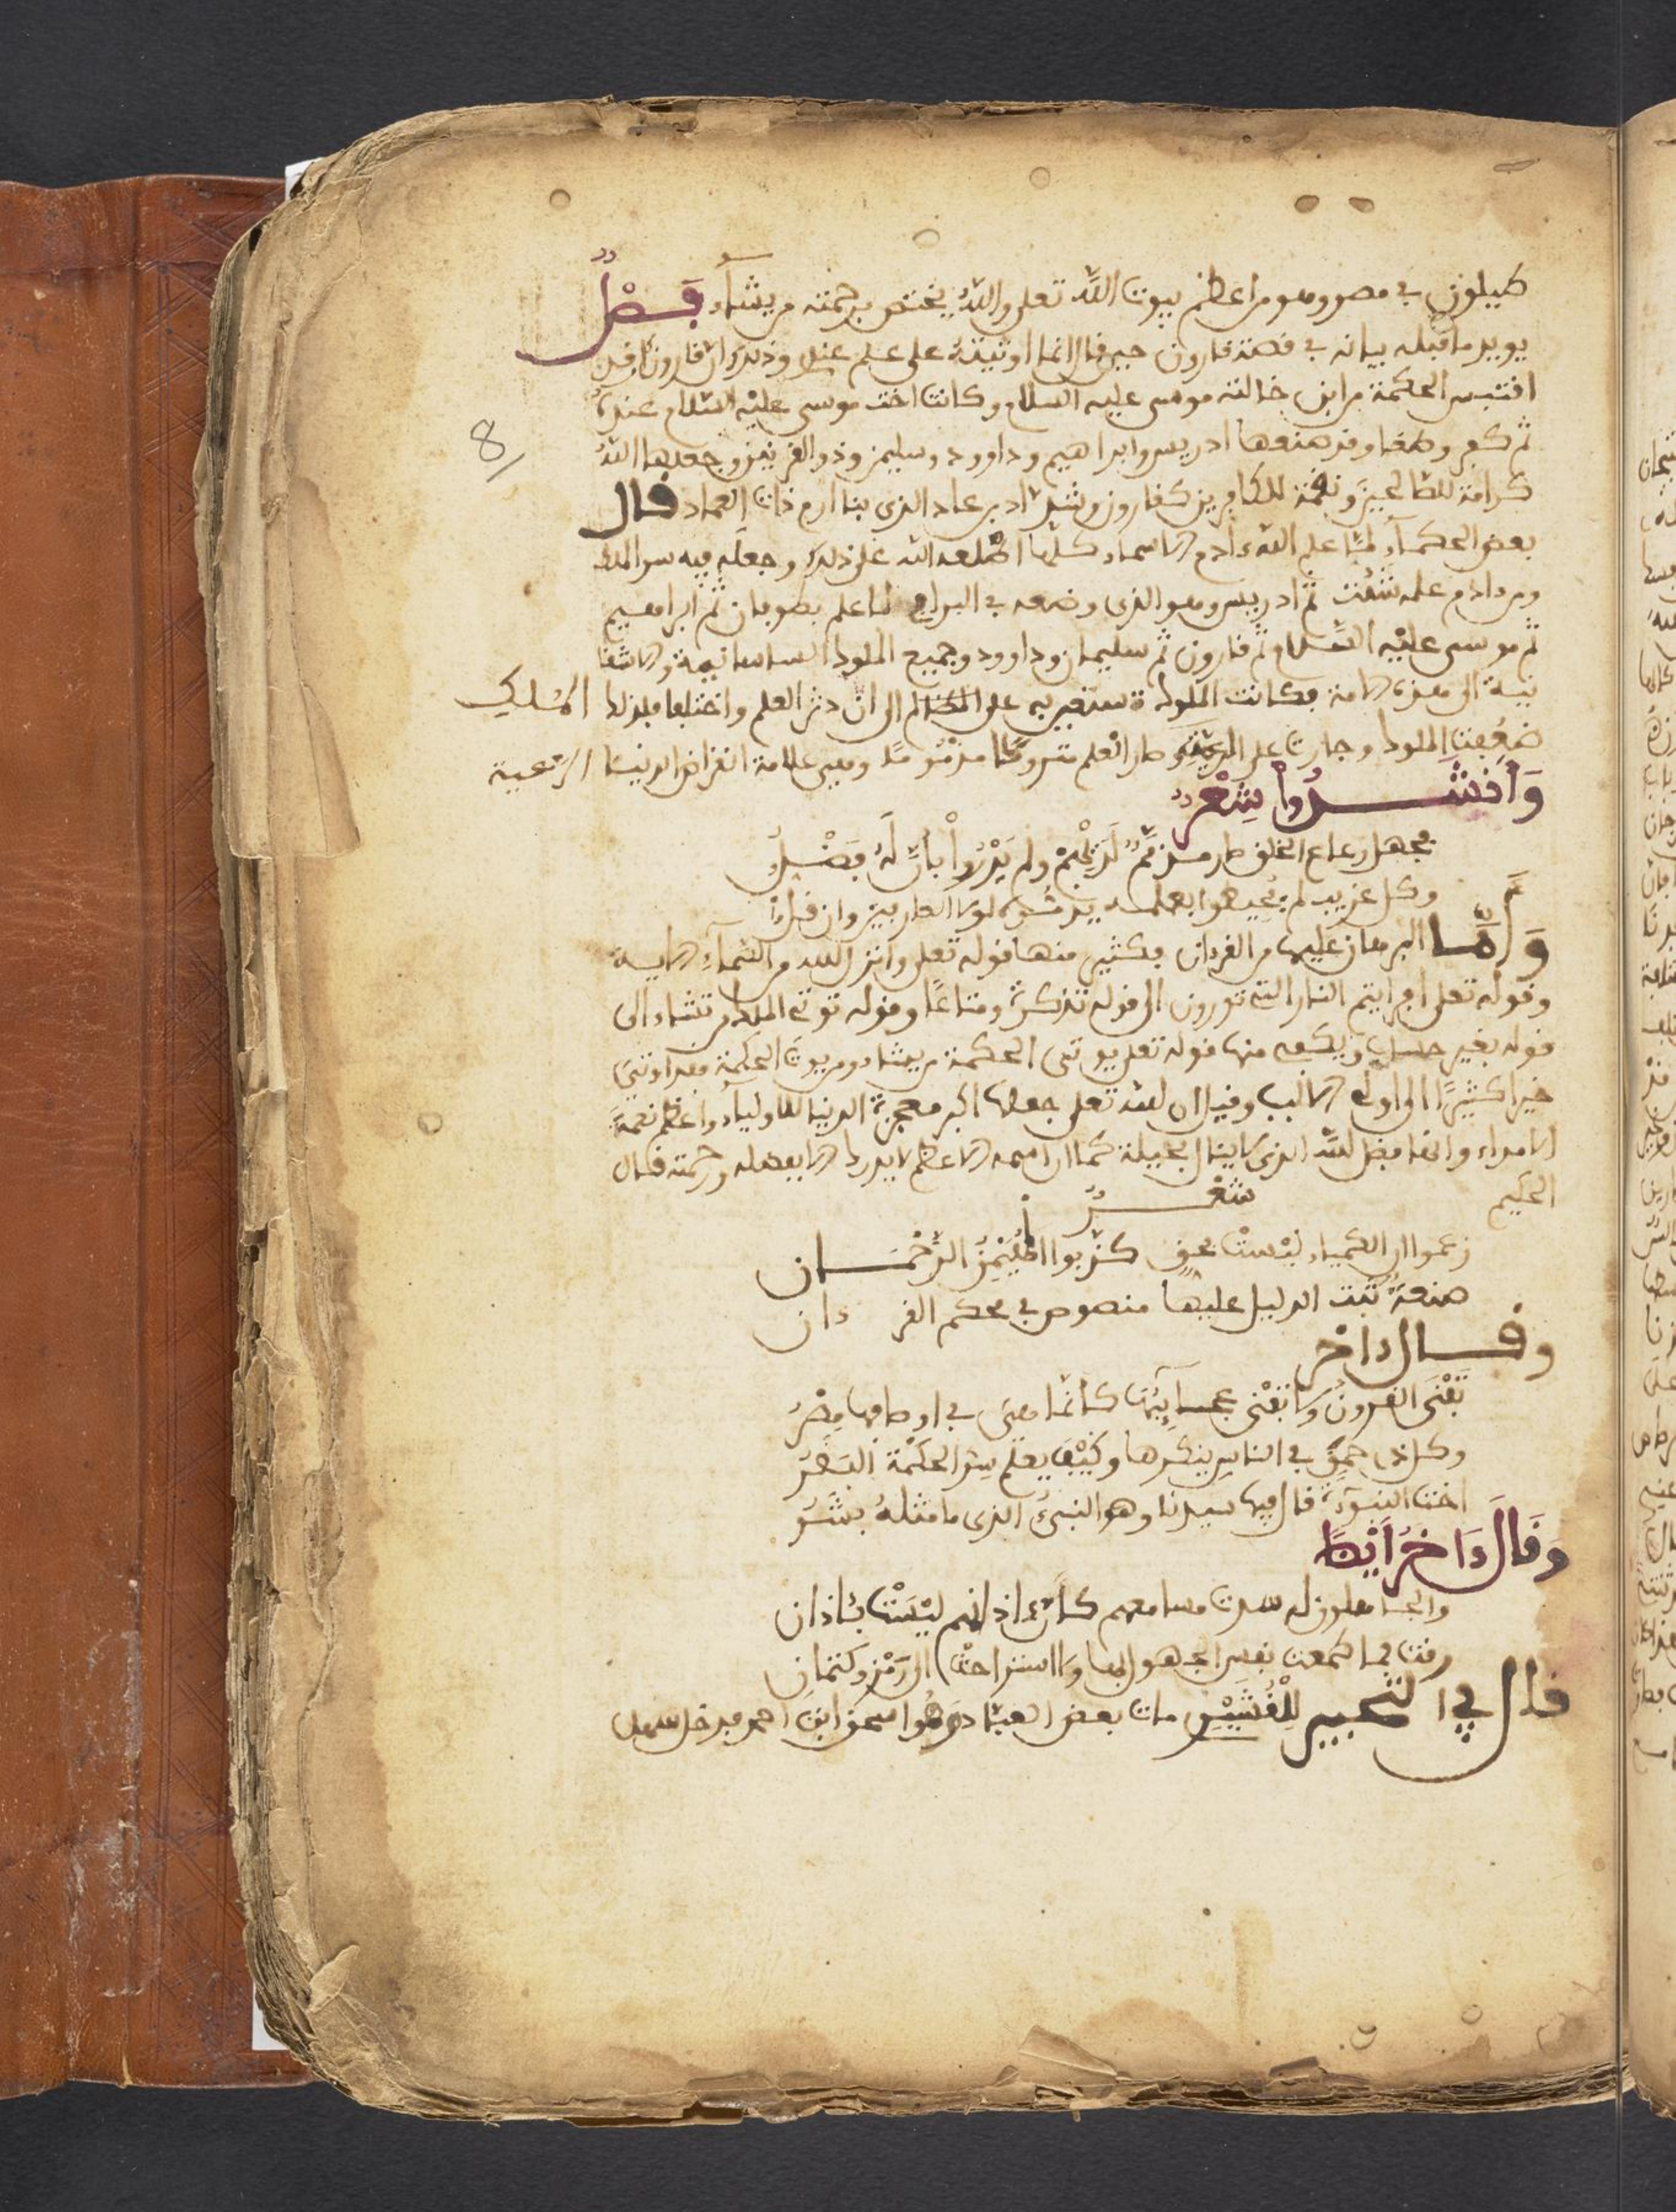 طيلون في مصر وهو من اعظم بيوت الله تعلى والله يختص برحمته من يشاء فصل
يويد ما قبله بيانه في قصة قارون حين قال انما اوتيته على علم عندي وذلك ان قارون
اقتبس الحكمة من ابن خالته موسى عليه السلام وكانت اخت موسى عليه السلام عنده
ثم كفر وطغا وقد صنعها ادريس وابراهيم وداوود وسليمن وذو القرنين وجعلها الله
8
كرامة للصالحين ونقمة للكافرين كقارون وشداد بن عاد الذي بنا ارم ذات العماد قال
بعض الحكماء لما علم الله ءادم الاسماء كلها اطلعه الله على ذلك وجعله فيه سر الملك
ومن ءادم علمه شئت ثم ادريس وهو الذي وضعه في البرابي لما علم بطوفان ثم ابراهيم
ثم موسى عليه السلام ثم قارون ثم سليمان وداوود وجميع الملوك الساسانية
الى هذه الامة فكانت الملوك تستعين به على الى ان دثر العلم واختلفا فبذلك
ضعفت الملوك وجارت على الرعية وصار العلم متروكا مذموما وهي علامة انقراض الدنيا
وانشدوا شعر
بجهل رعاع الخلق صار مذمم لديهم ولم يدروا بان له فضل
وكل غريب لم يحيطوا بعلمه
واما البرهان عليها من القرءان فكثير منها قوله تعلى وانزل الله من السماء الاية
وقوله تعلى افرايتم النار التي تورون الى قوله تذكرة ومتاعا وقوله توتي الملك من تشاء الى
قوله بغير حساب ويكفيه منها قوله تعلى يوتى الحكمة من يشاء ومن يوت الحكمة فقد اوتي
خيرا كثيرا الى اولي الالبب وقيل ان الله تعلى جعلها اكبر معجزة الدنيا للاولياء واعظم نعمة
الامراء وانها فضل الله الذي لا ينال بحيلة كما ان اسمه الاعظم لا يدرك الا بفضله ورحمته قال
الحكيم شعر
زعموا ان الكمياء ليست بحق كذبوا المهيمن الرحمان
صنعة ثبت الدليل عليها منصوص في محكم القرءان
وقال ءاخر
تفنى القرون ولا تفنى عجائبها كانما هي في اوصافها
وكل ذي حمق في الناس ينكرها وكيف يعلم سر الحكمة البقر
اخت النبوءة قال فيها سيدنا وهو النبي الذي ما مثله بشر
وقال ءاخر ايضا
والجاهلون له سدت مسامعهم كان ءاذانهم ليست بئاذان
الى رمز وكتمان
قال في التحبير للقشيري مات بعض العباد وهو اسحق ابن احمد فدخل سهل